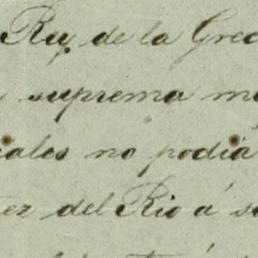 Rey de la Grec
suprema m
iales no podia
ez del Rio á s